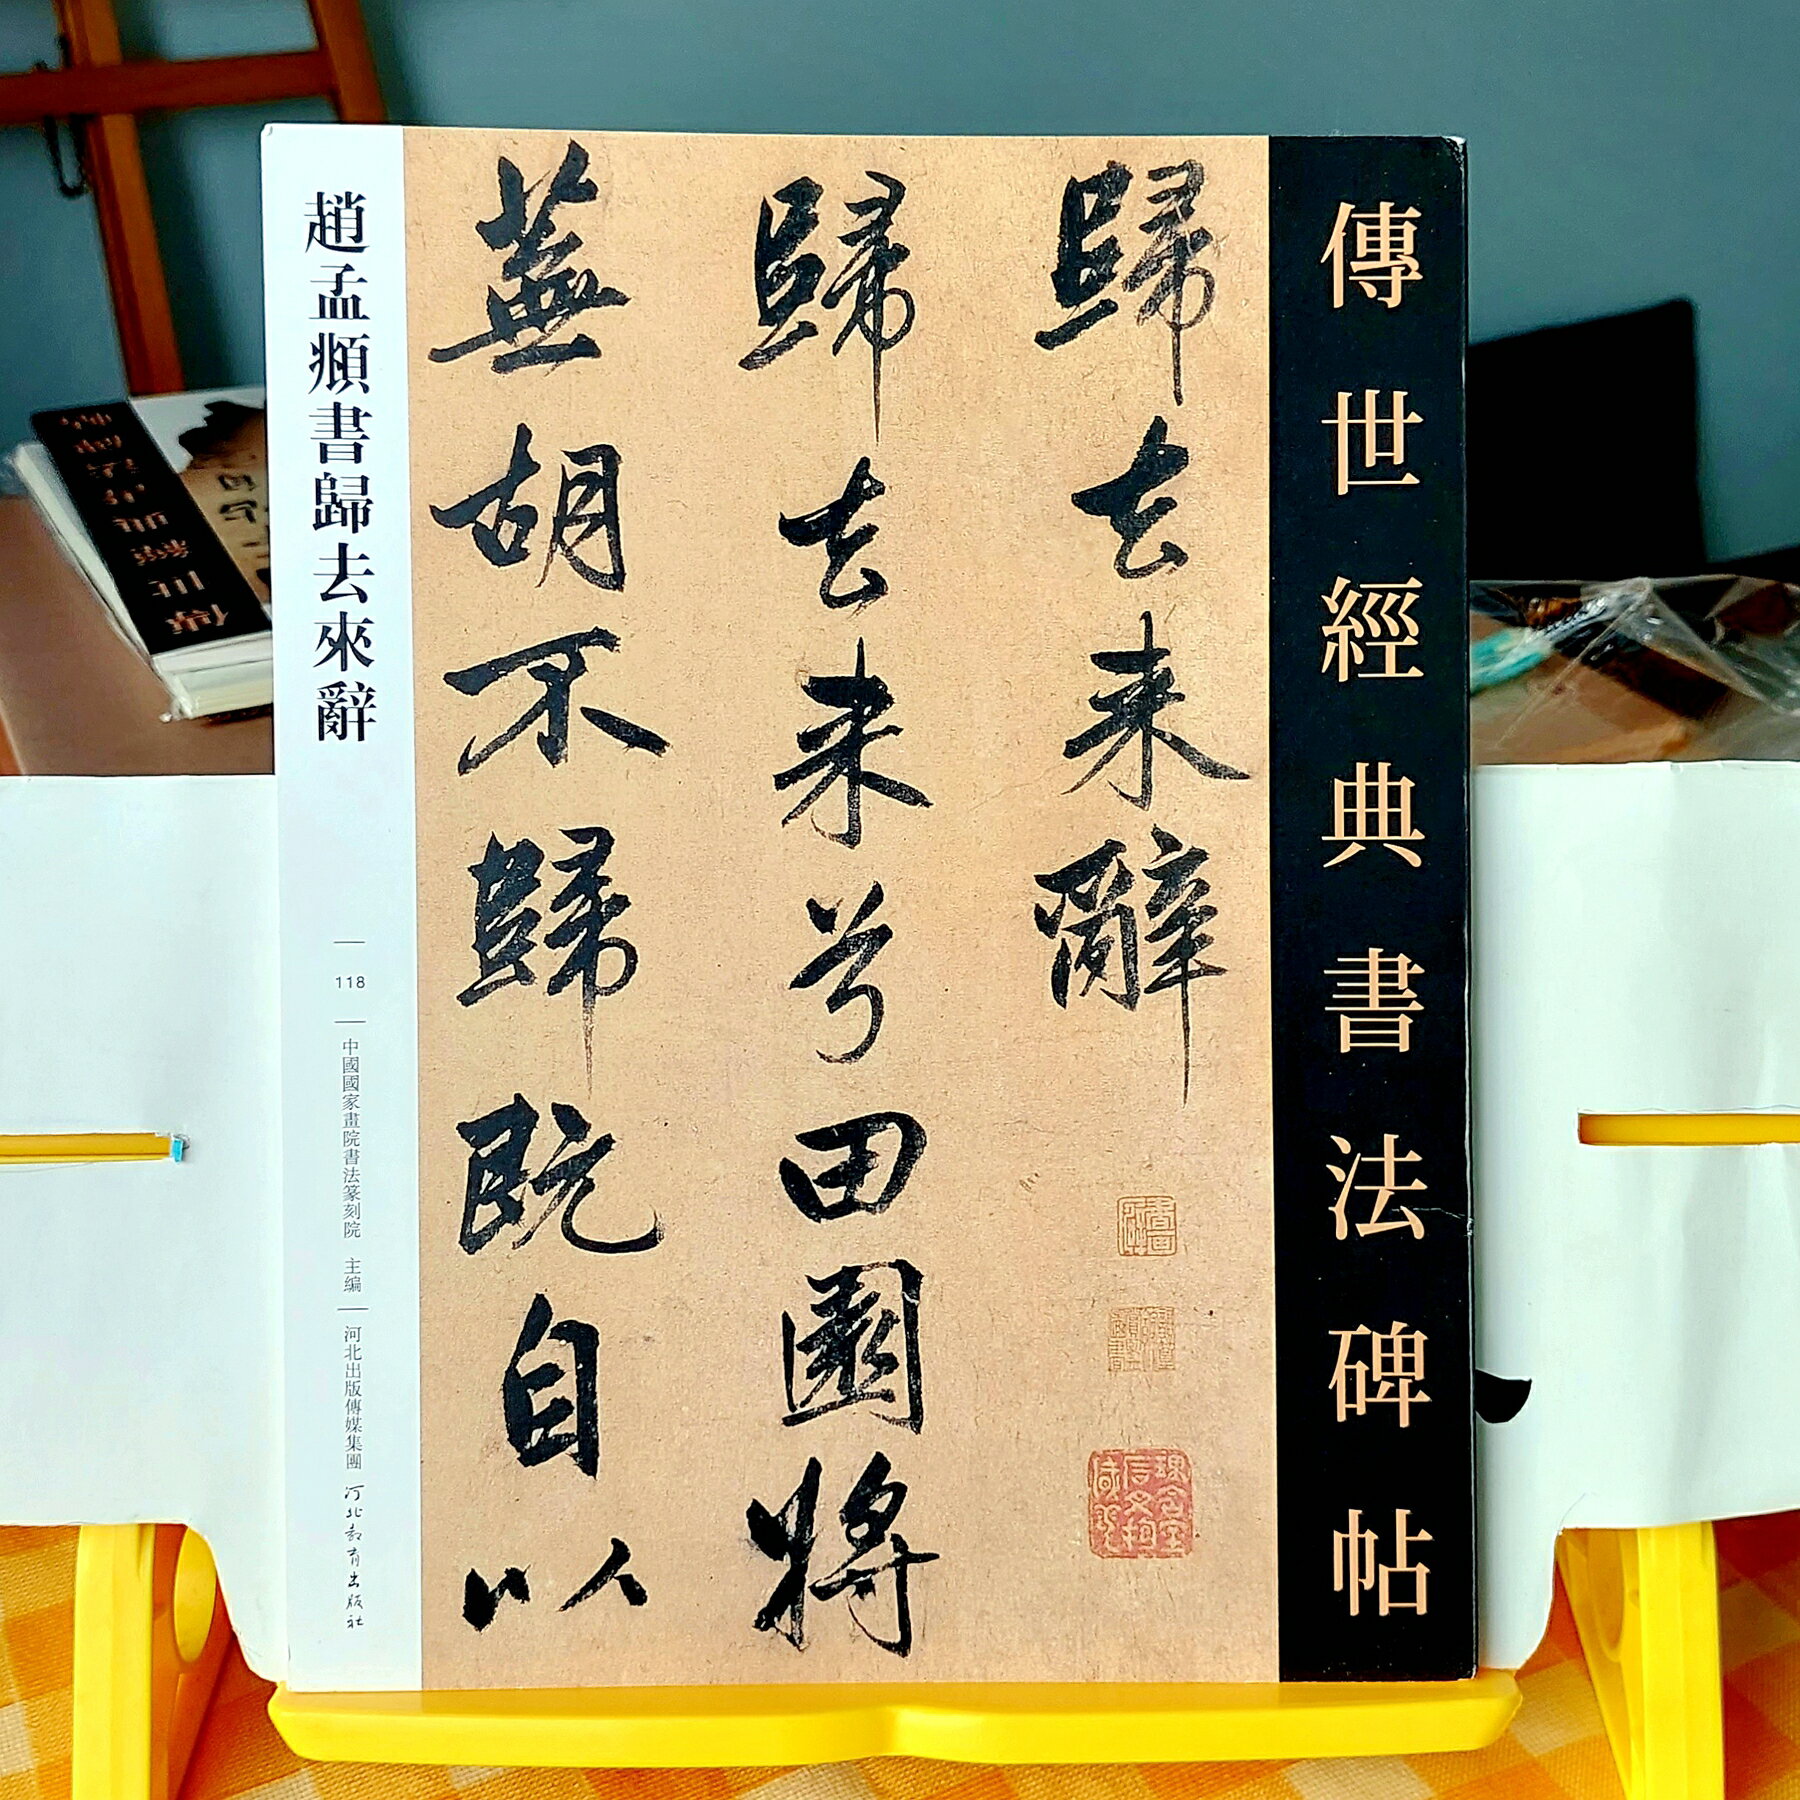 傳世經典書法碑帖
歸去来辭
歸去来兮田園將
蕪胡不歸既自以
趙孟頫書歸去來辭
118
中國國家畫院書法篆刻院 主编
河北出版傳媒集團
河北教育出版社